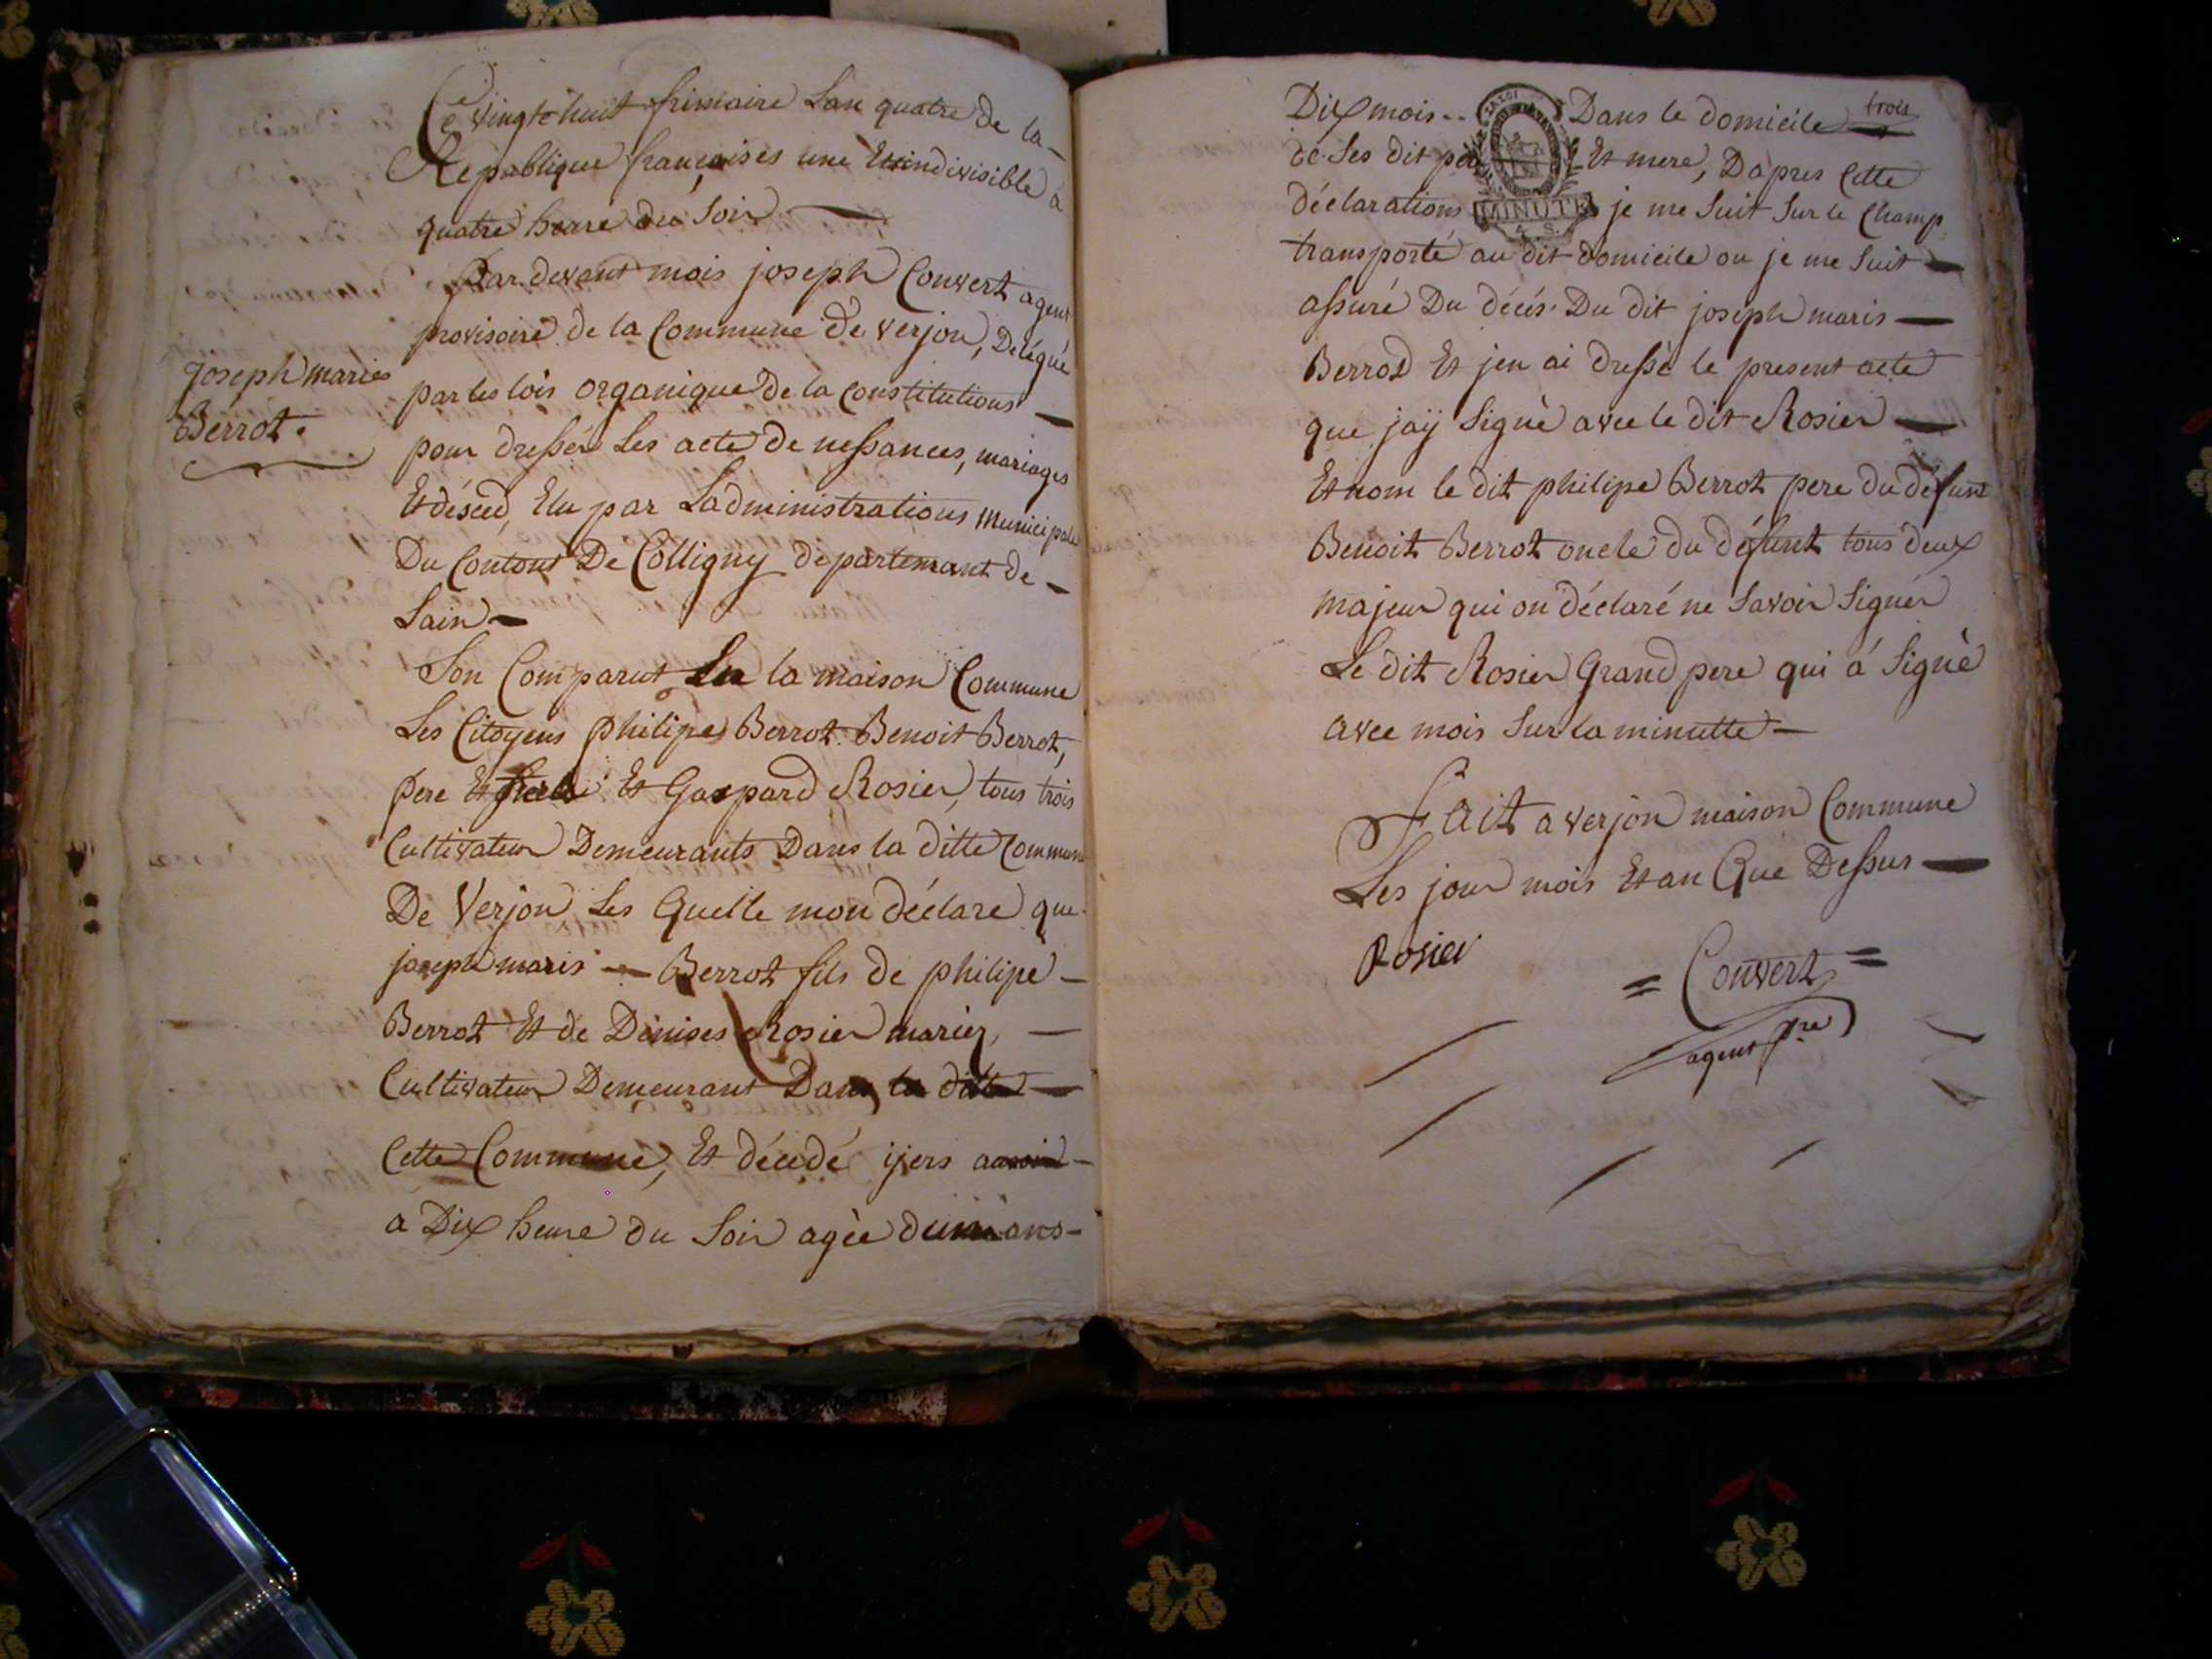 Ce vingt huit frimaire Lan quatre De la
Republique françaises une Etindivisible a
quatre heure du Soir
par devant mois joseph Convert agent
provisoire de la Commune de verjon, Delégué
joseph maries
Berrot.
par les lois organique de la constitutions
pour dressér Les acte De nessances, mariages
Et déséd, Elu par Ladministrations municipale
Du Contont De Colligny departemant de
Lain
Son Comparut En la maison Commune
Les Citoyens philipe Berrot Benoit Berrot,
pere Et Et Gaspard Rosier, tous trois
Cultivateur Demeurants Dans la ditte Commune
De Verjon Les Quelle mon déclare que
joseph maris Berrot fils de philipe
Berrot Et de Dénises Rosier mariez,
Cultivateur Demeurant Dans la ditte
Cette Commune, Et décédé ijers
a Dix heure du Soir agèe ans
Dix mois Dans le domicile trois
de Ses dit pere Et mere, Dapres Cette
déclarations je me Suit Sur le Champ
MINUTE
transporté au dit domicile ou je me Suit
assuré Du décés Du dit joseph maris
Berrod Et jen ai dressé le present acte
que jaÿ Signè avec le dit Rosier
Et nom le dit philipe Berrot pere du défunt
Benoit Berrot oncle du défunt tous deux
majeur qui on déclaré ne Savoir Signér
Le dit Rosier Grand pere qui á Signè
avec mois Sur la minutte
Fait a verjon maison Commune
Les jour mois Et an Que Dessus
Rosier
= Convert =
agent pre